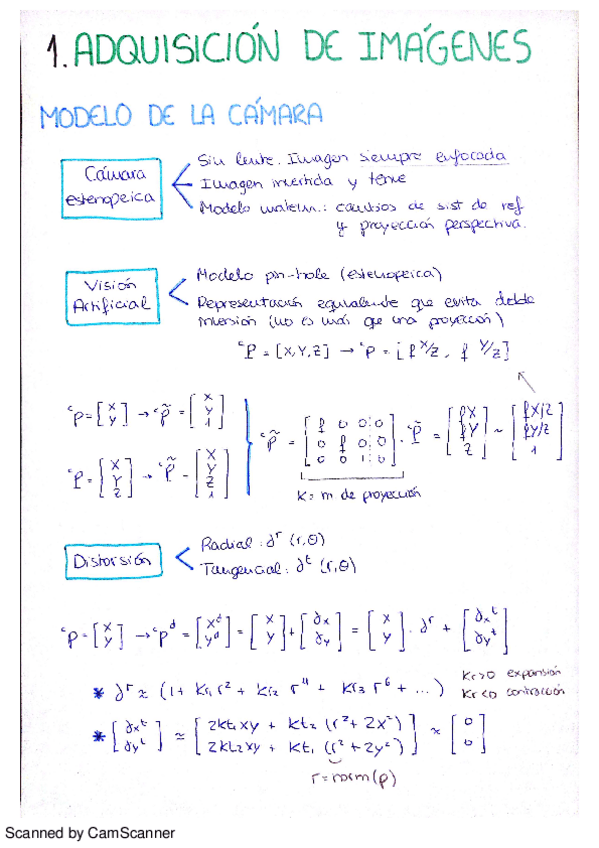 1. ADQUISICIÓN DE IMÁGENES
MODELO DE LA CÁMARA
Cámara estenopeica
Sin lente. Imagen siempre enfocada
Imagen invertida y tenue
Modelo matem.: cambios de sist de ref
y proyección perspectiva.
Visión Artificial
Modelo pin-hole (estenopeica)
Representación equivalente que evita doble
inversión (no es más que una proyección)
ᶜP = [X,Y,Z] → ᶜp = [f X/Z , f Y/Z]
ᶜp = [x y] → ᶜp̃ = [x y 1]
ᶜP = [X Y Z] → ᶜP̃ = [X Y Z 1]
ᶜp̃ = [f 0 0 0; 0 f 0 0; 0 0 1 0] · ᶜP̃ = [fX fY Z] ~ [fX/Z fY/Z 1]
K = m de proyección
Distorsión
Radial: ∂ʳ (r,θ)
Tangencial: ∂ᵗ (r,θ)
ᶜp = [x y] → ᶜpᵈ = [xᵈ yᵈ] = [x y] + [∂x ∂y] = [x y] · ∂ʳ + [∂xᵗ ∂yᵗ]
* ∂ʳ ≈ (1 + kr₁ r² + kr₂ r⁴ + kr₃ r⁶ + ...)
Kr>0 expansión
Kr<0 contracción
* [∂xᵗ ∂yᵗ] ≈ [2kt₁xy + kt₂ (r²+2x²); 2kt₂xy + kt₁ (r²+2y²)] ≈ [0 0]
r = norm(p)
Scanned by CamScanner